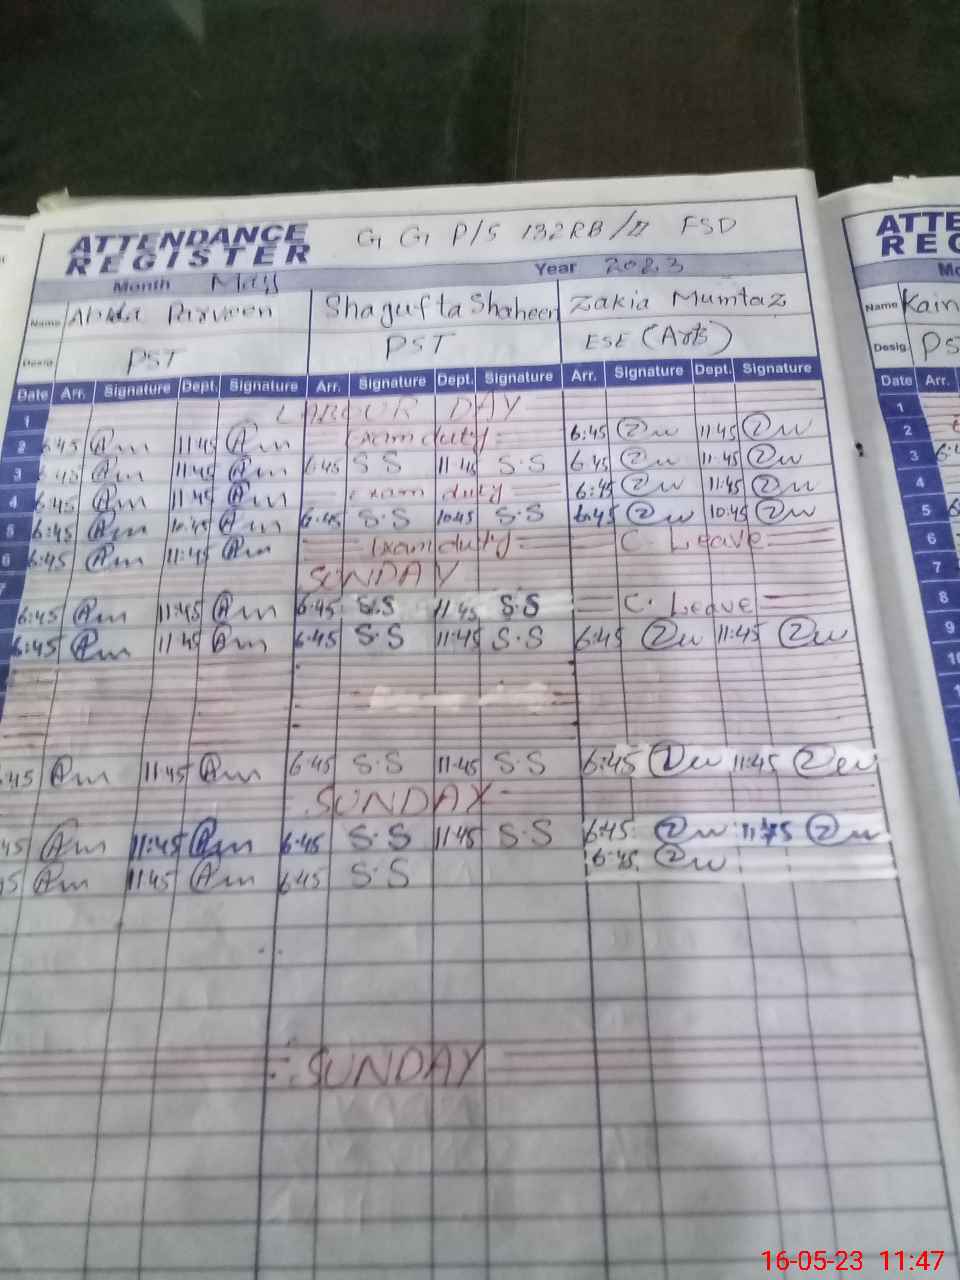 ATTENDANCE G G P/S 132RB/ FSD
REGISTER
Month May Year 2023
Name Parveen Shagufta Shaheen Zakia Mumtaz
Desig. PST PST ESE (Arts)
Date Arr. Signature Dept. Signature Arr. Signature Dept. Signature Arr. Signature Dept. Signature
1 LABOUR DAY
2 6:45 Am 11:45 Am Exam duty 6:45 Zw 11:45 Zw
3 6:45 Am 11:45 Am 6:45 S S 11:45 S.S 6:45 Zw 11:45 Zw
4 6:45 Am 11:45 Am Exam duty 6:45 Zw 11:45 Zw
5 6:45 Am 10:45 Am 6:45 S.S 10:45 S.S 6:45 Zw 10:45 Zw
6 6:45 Am 11:45 Am Exam duty C. Leave
7 SUNDAY
6:45 Am 11:45 Am 6:45 S.S 11:45 S.S C. Leave
6:45 Am 11:45 Am 6:45 S.S 11:45 S.S 6:45 Zw 11:45 Zw
:45 Am 11:45 Am 6:45 S.S 11:45 S.S 6:45 Zw 11:45 Zw
SUNDAY
45 Am 11:45 Am 6:45 S.S 11:45 S.S 6:45 Zw 11:45 Zw
5 Am 11:45 Am 6:45 S.S 6:45 Zw
SUNDAY
ATTE
REG
Mo
Name Kain
Desig. PS
Date Arr.
1
2
3 6:4
4
5 6
6
7
8
9
10
1
16-05-23 11:47